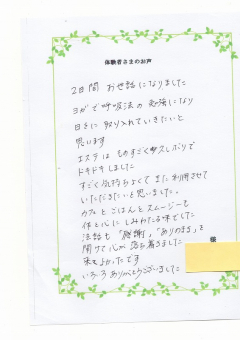 体験者さまのお声
2日間 お世話になりました
ヨガで呼吸法の勉強になり
日々に取り入れていきたいと
思います
エステは ものすごく久しぶりで
ドキドキしました
すごく気持ちよくて また利用させて
いただきたいと思いました。
カフェごはんとスムージーも
体と心にしみわたる味でした
法話も「感謝」,「ありのまま」を
聞けて心が落ち着きました
来てよかったです
いろいろありがとうございました
様